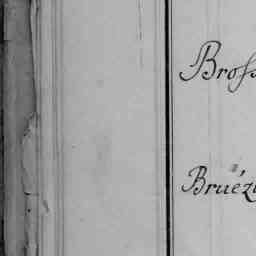 Bross
Bruéz